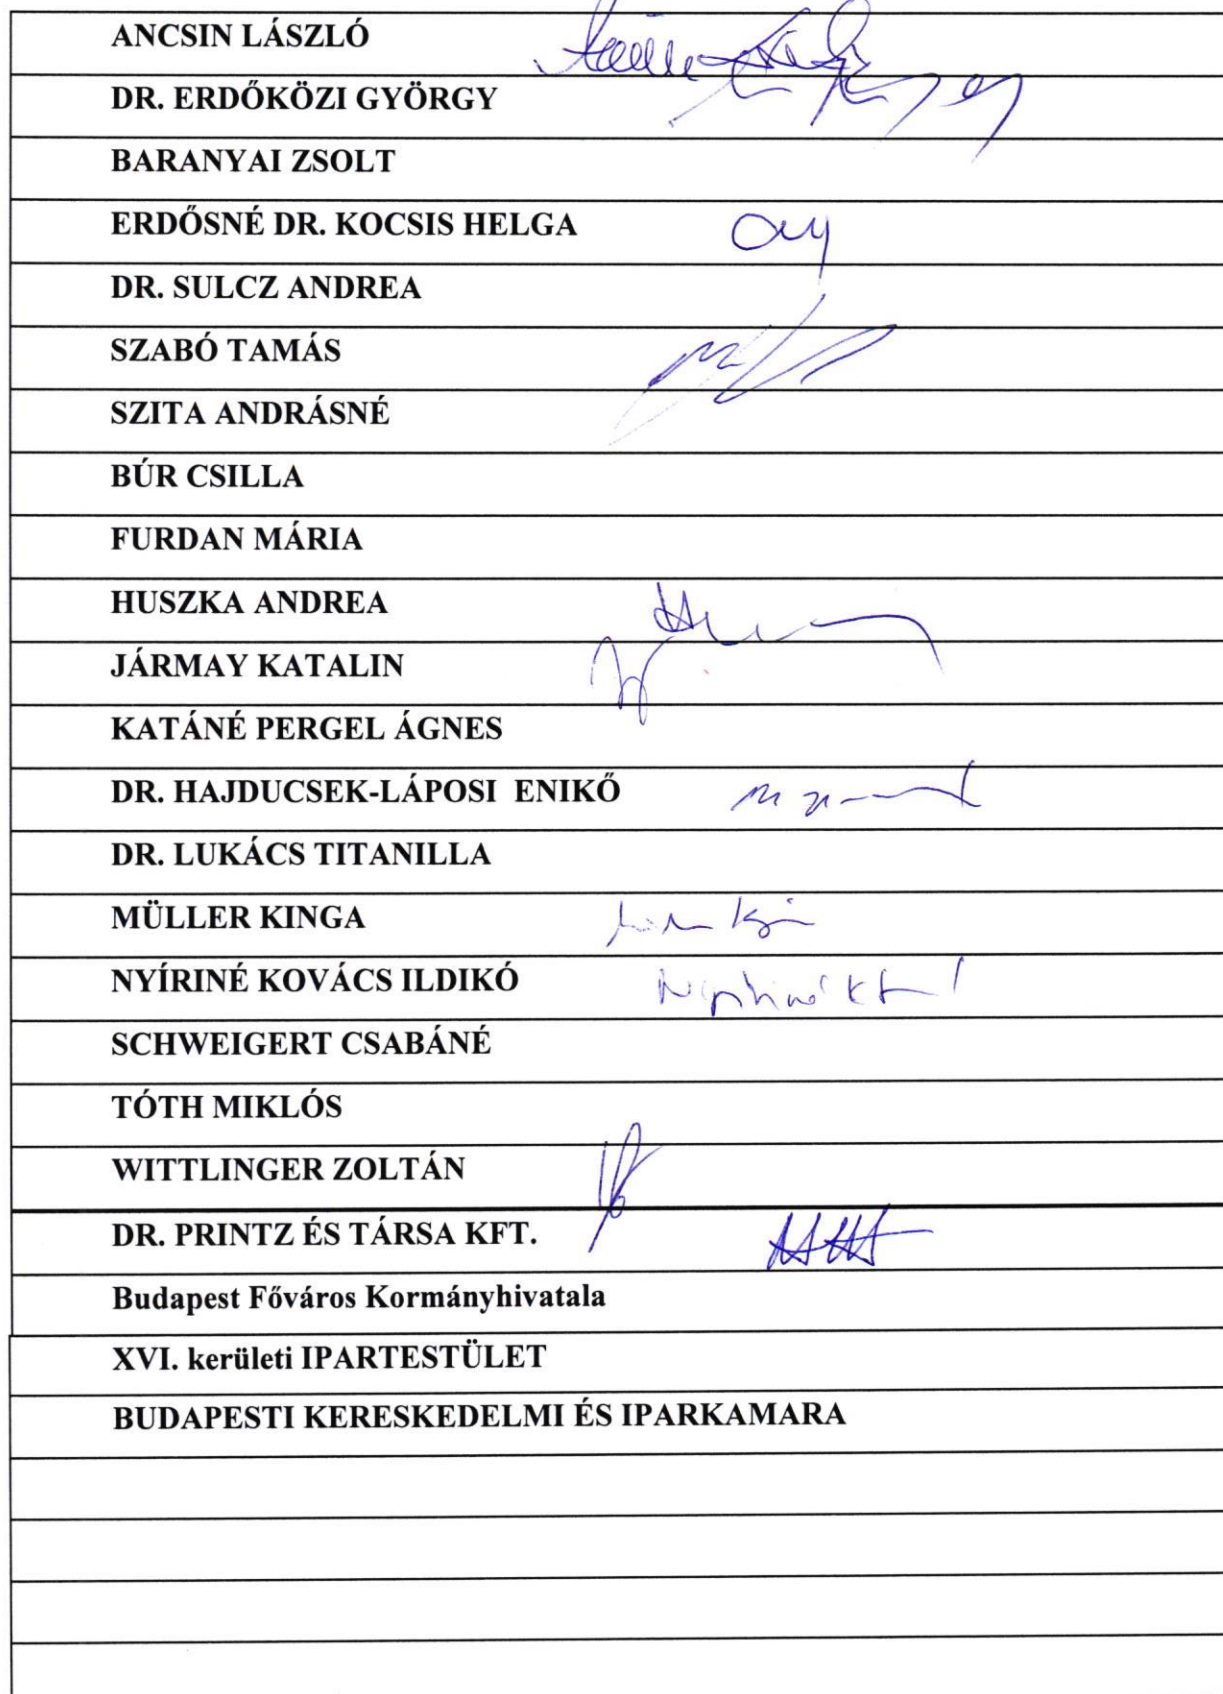 ANCSIN LÁSZLÓ
DR. ERDŐKÖZI GYÖRGY
BARANYAI ZSOLT
ERDŐSNÉ DR. KOCSIS HELGA
DR. SULCZ ANDREA
SZABÓ TAMÁS
SZITA ANDRÁSNÉ
BÚR CSILLA
FURDAN MÁRIA
HUSZKA ANDREA
JÁRMAY KATALIN
KATÁNÉ PERGEL ÁGNES
DR. HAJDUCSEK-LÁPOSI ENIKŐ
DR. LUKÁCS TITANILLA
MÜLLER KINGA
NYÍRINÉ KOVÁCS ILDIKÓ
SCHWEIGERT CSABÁNÉ
TÓTH MIKLÓS
WITTLINGER ZOLTÁN
DR. PRINTZ ÉS TÁRSA KFT.
Budapest Főváros Kormányhivatala
XVI. kerületi IPARTESTÜLET
BUDAPESTI KERESKEDELMI ÉS IPARKAMARA